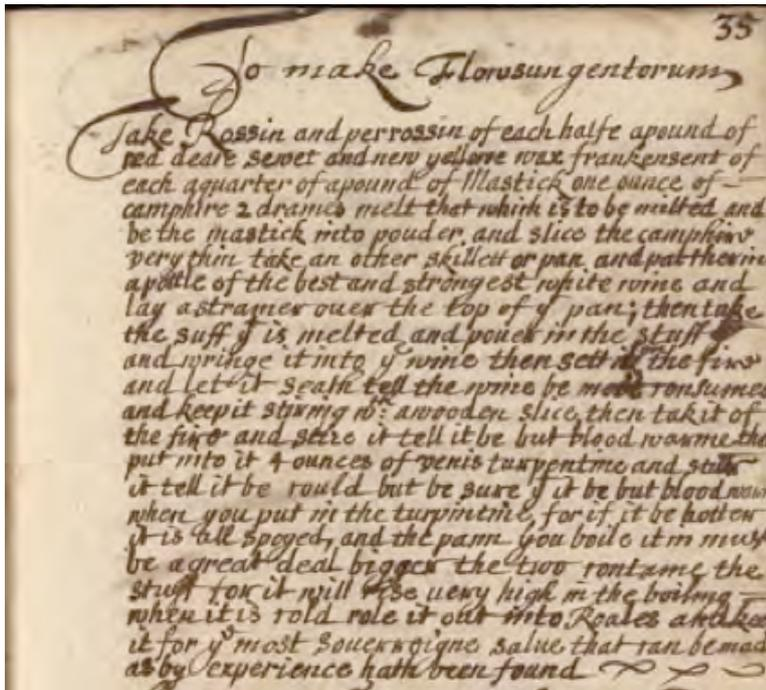 35
To make Flowsungentorum
Take Rossin and perrossin of each halfe a pound of
red deare sewet and new yellowe wax frankensent of
each a quarter of a pound of Mastick one ounce of
camphire 2 drames melt that which is to be milted and
be the mastick into pouder, and slice the camphire
very thin take an other skillett or pan and put therin
a pottle of the best and strongest white wine and
lay a strainer ouer the top of yͤ pan; then take
the suff yͭ is melted and pouer in the stuff
and wringe it into yͤ wine then sett the fire
and let it seath tell the wine be consumed
and keep it stiring wͭʰ: a wooden slice, then tak it of
the fire and it tell it be but blood warme
put into it 4 ounces of venis turpentine and
it tell it be could but be sure yͭ it be but blood
when you put in the turpintine, for if it be hotter
it is all spoyed, and the pann you boile it in must
be a great deal bigger the two contame the
stuff for it will rise uery high in the boiling
when it is cold role it out into Roales and
it for yͤ most Souerroigne salue that can be mad
as by experience hath been found